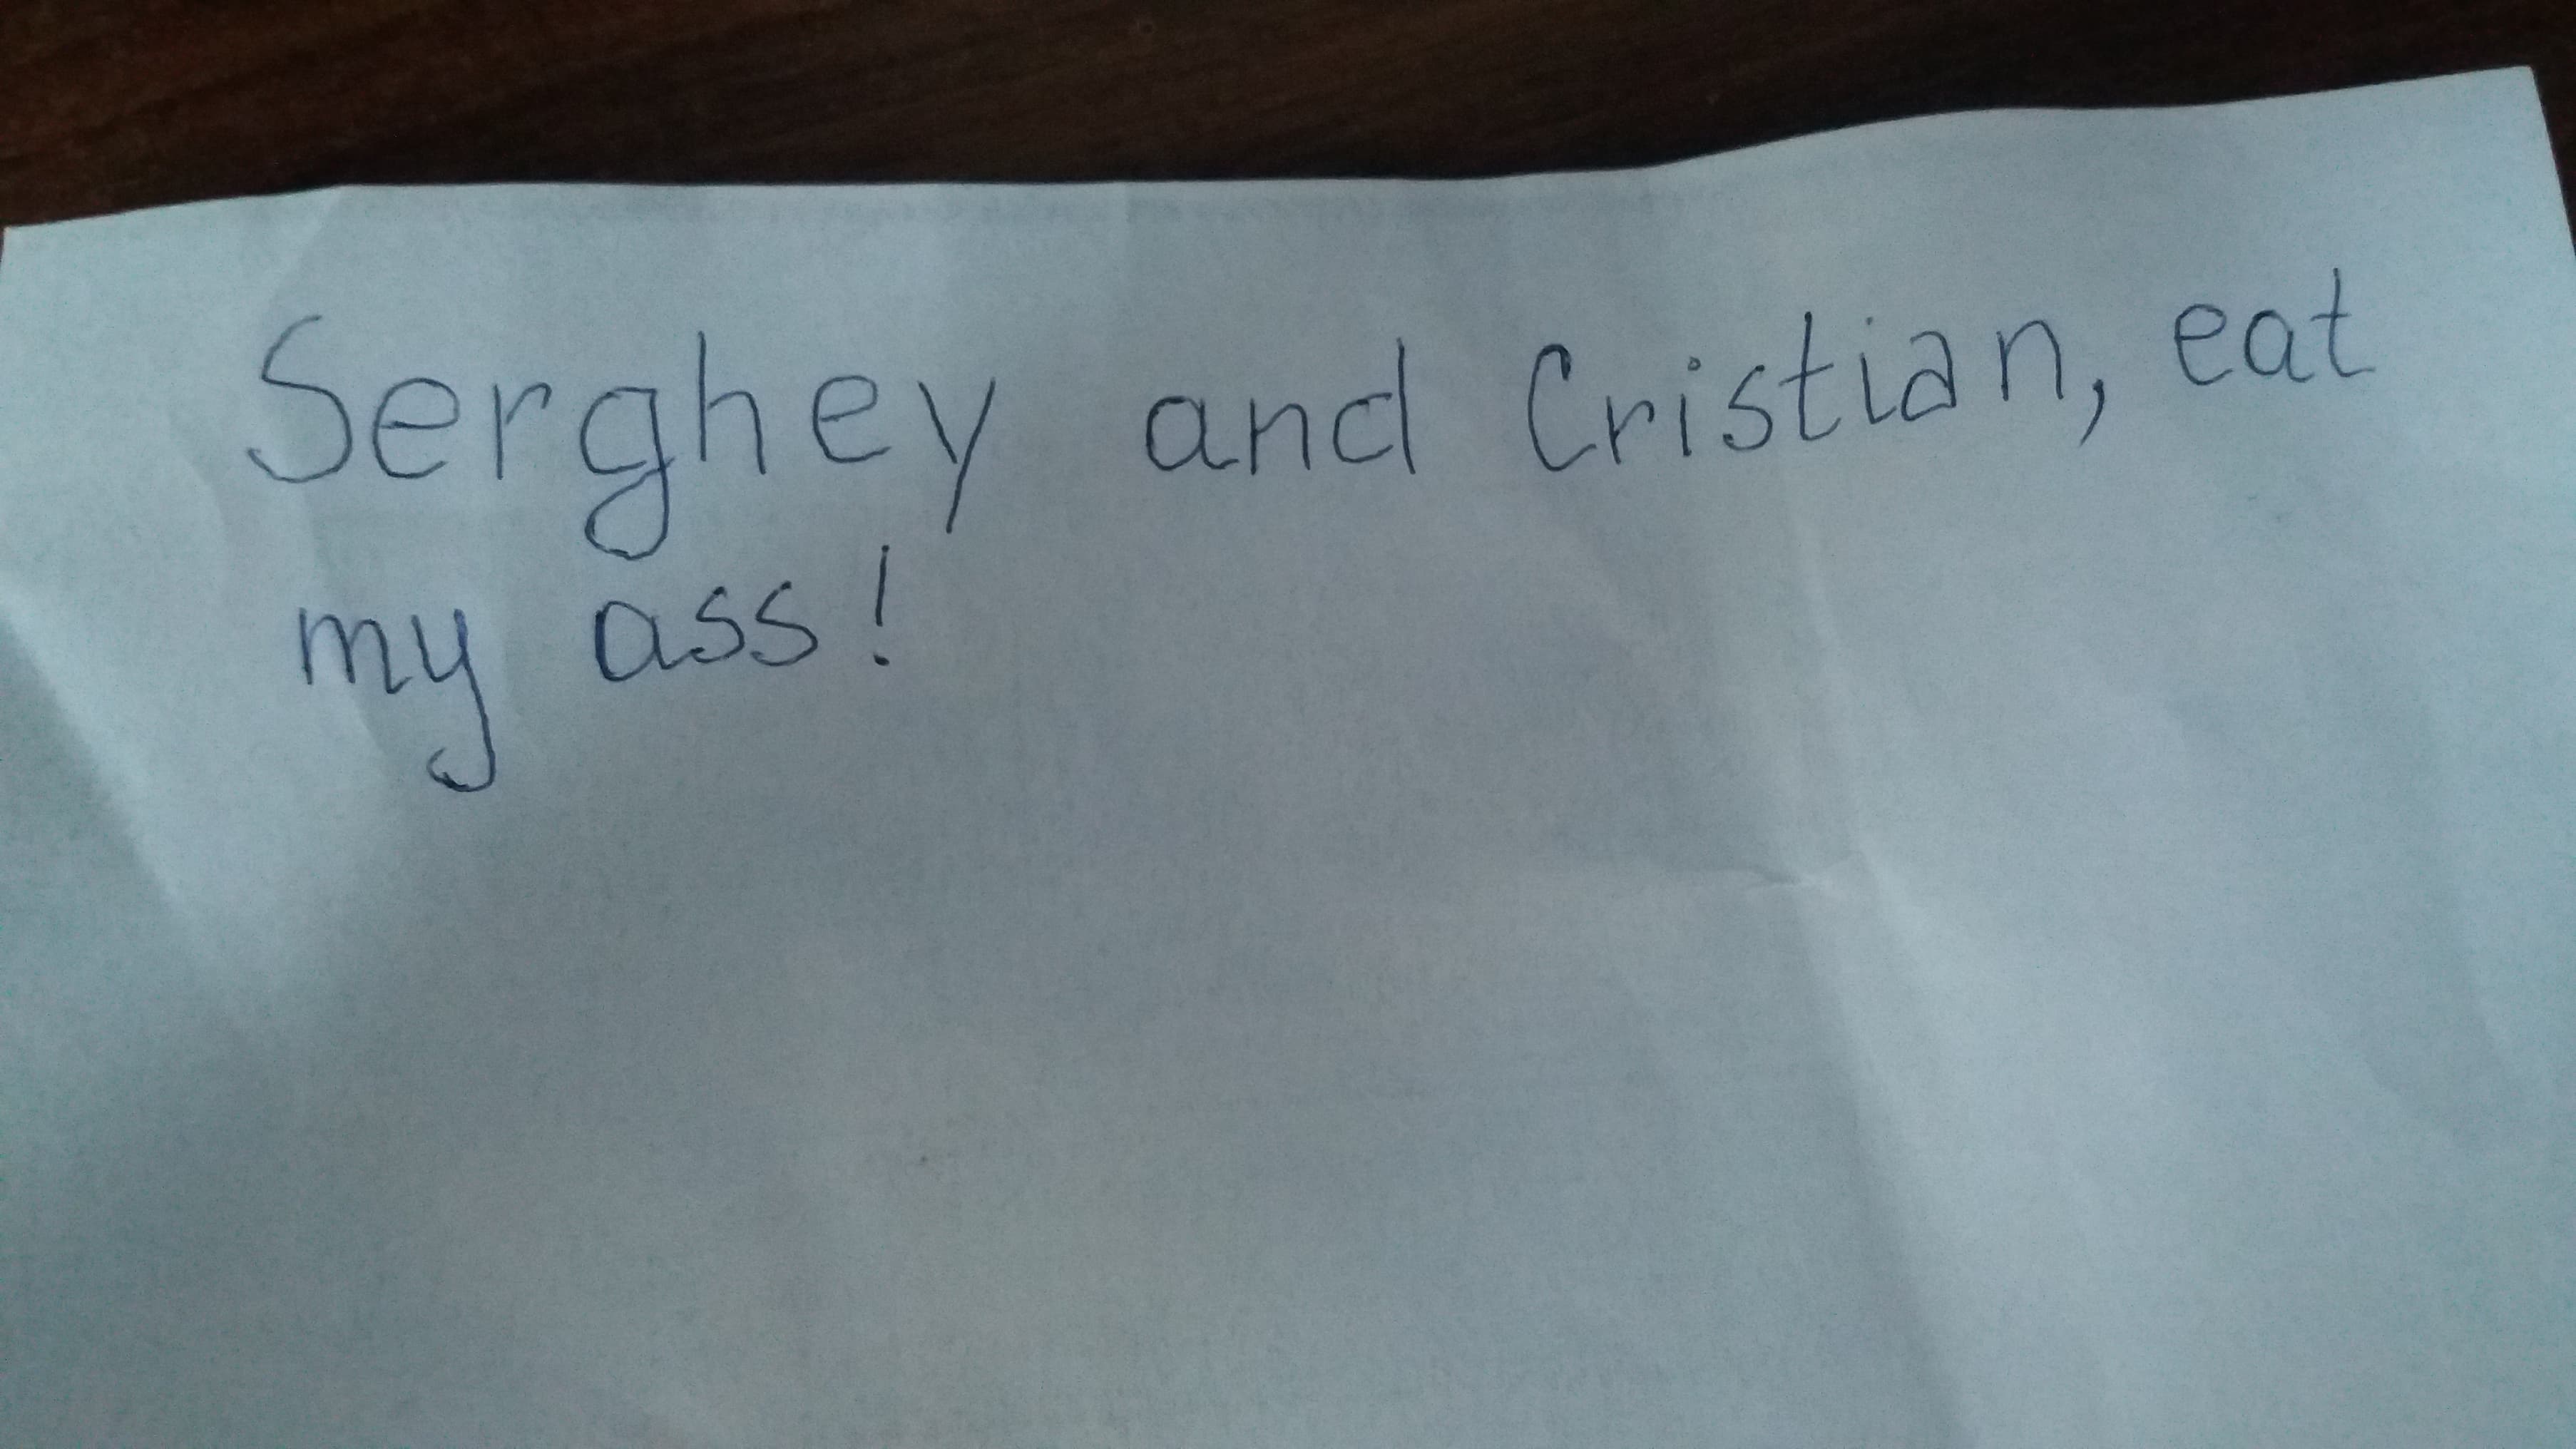 Serghey and Cristian, eat
my ass!